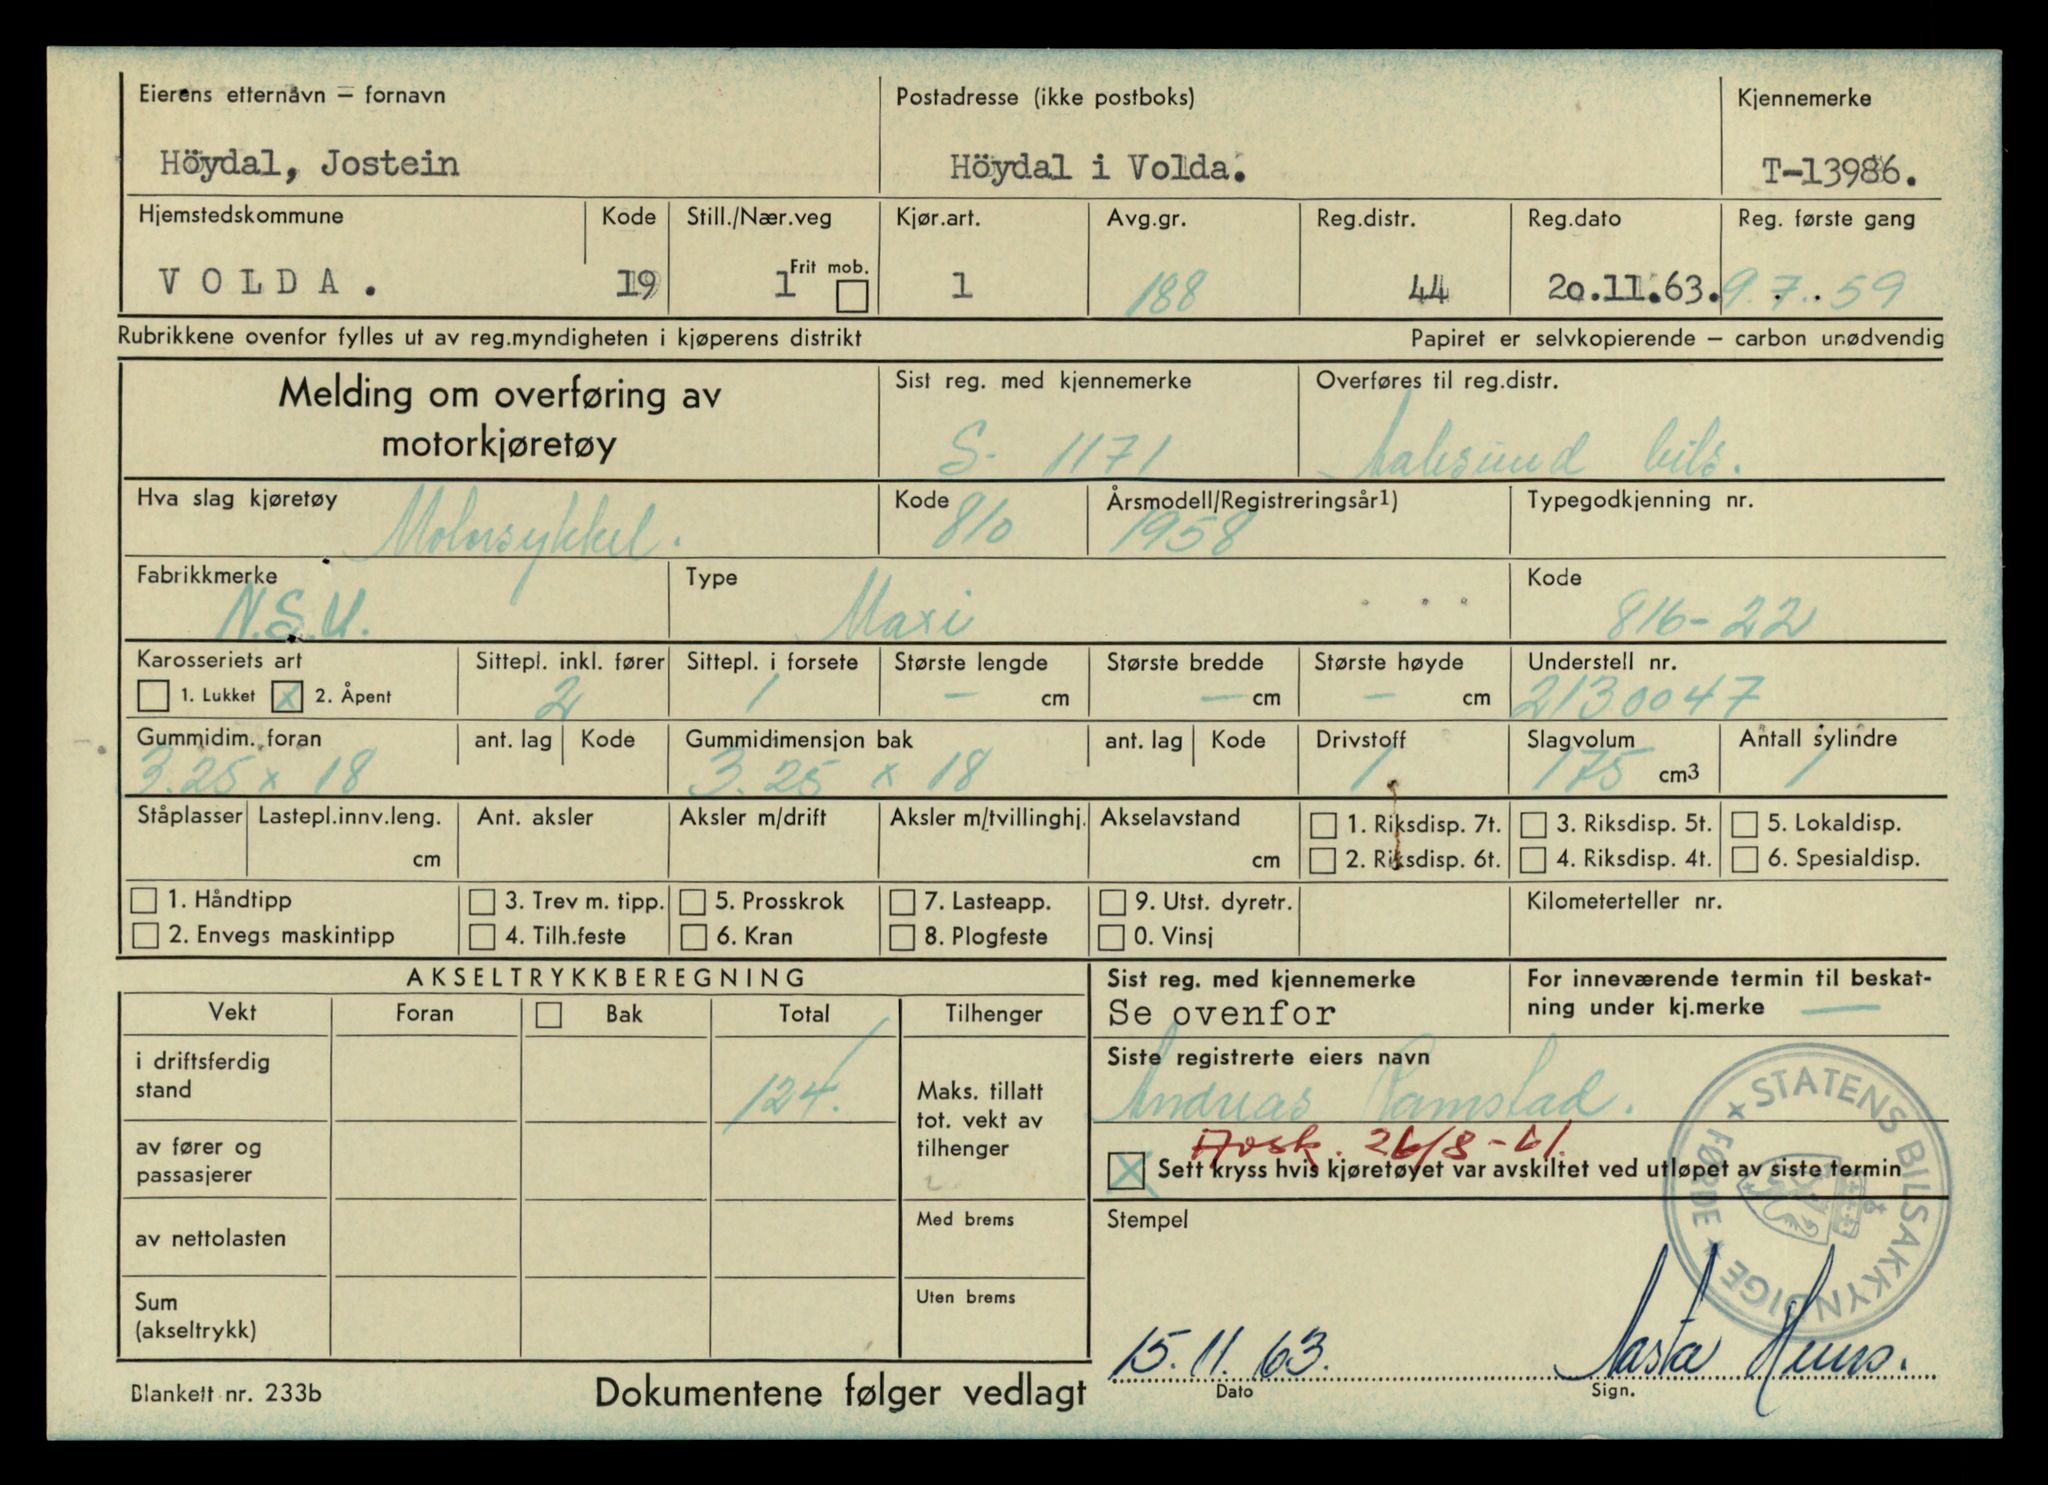 Eierens etternavn – fornavn
Höydal, Jostein
Postadresse (ikke postboks)
Höydal i Volda.
Kjennemerke
T-13986.
Hjemstedskommune
VOLDA.
Kode
19
Still./Nær.veg
1
Frit mob.
Kjør.art.
1
Avg.gr.
188
Reg.distr.
44
Reg.dato
20.11.63.
Reg. første gang
9.7.59
Rubrikkene ovenfor fylles ut av reg.myndigheten i kjøperens distrikt
Papiret er selvkopierende – carbon unødvendig
Melding om overføring av
motorkjøretøy
Sist reg. med kjennemerke
S- 1171
Overføres til reg.distr.
Aalesund bils.
Hva slag kjøretøy
Motorsykkel.
Kode
810
Årsmodell/Registreringsår1)
1958
Typegodkjenning nr.
Fabrikkmerke
N.S.U.
Type
Maxi
Kode
816-22
Karosseriets art
1. Lukket
X 2. Åpent
Sittepl. inkl. fører
2
Sittepl. i forsete
1
Største lengde
– cm
Største bredde
– cm
Største høyde
– cm
Understell nr.
2130047
Gummidim. foran
3.25 x 18
ant. lag
Kode
Gummidimensjon bak
3.25 x 18
ant. lag
Kode
Drivstoff
1
Slagvolum
175 cm3
Antall sylindre
1
Ståplasser
Lastepl.innv.leng.
cm
Ant. aksler
Aksler m/drift
Aksler m/tvillinghj.
Akselavstand
cm
1. Riksdisp. 7t.
2. Riksdisp. 6t.
3. Riksdisp. 5t.
4. Riksdisp. 4t.
5. Lokaldisp.
6. Spesialdisp.
1. Håndtipp
2. Envegs maskintipp
3. Trev m. tipp.
4. Tilh.feste
5. Prosskrok
6. Kran
7. Lasteapp.
8. Plogfeste
9. Utst. dyretr.
0. Vinsj
Kilometerteller nr.
AKSELTRYKKBEREGNING
Vekt
Foran
Bak
Total
Tilhenger
i driftsferdig
stand
124.
av fører og
passasjerer
av nettolasten
Sum
(akseltrykk)
Maks. tillatt
tot. vekt av
tilhenger
Med brems
Uten brems
Sist reg. med kjennemerke
Se ovenfor
For inneværende termin til beskat-
ning under kj.merke –
Siste registrerte eiers navn
Andreas Ramstad.
Avsk. 26/8-61.
X Sett kryss hvis kjøretøyet var avskiltet ved utløpet av siste termin
Stempel
STATENS BILSAKKYNDIGE
FØRDE
15.11.63.
Dato
Sign.
Blankett nr. 233b
Dokumentene følger vedlagt